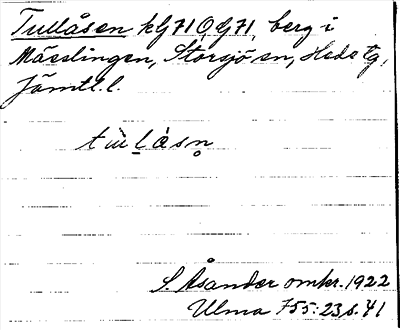 Tullåsen kG71Ö, G71, berg i
Mässlingen, Storsjö sn, Hede tg,
Jämtl. l.
S. Åsander omkr. 1922
Ulma 755:23 s. 41